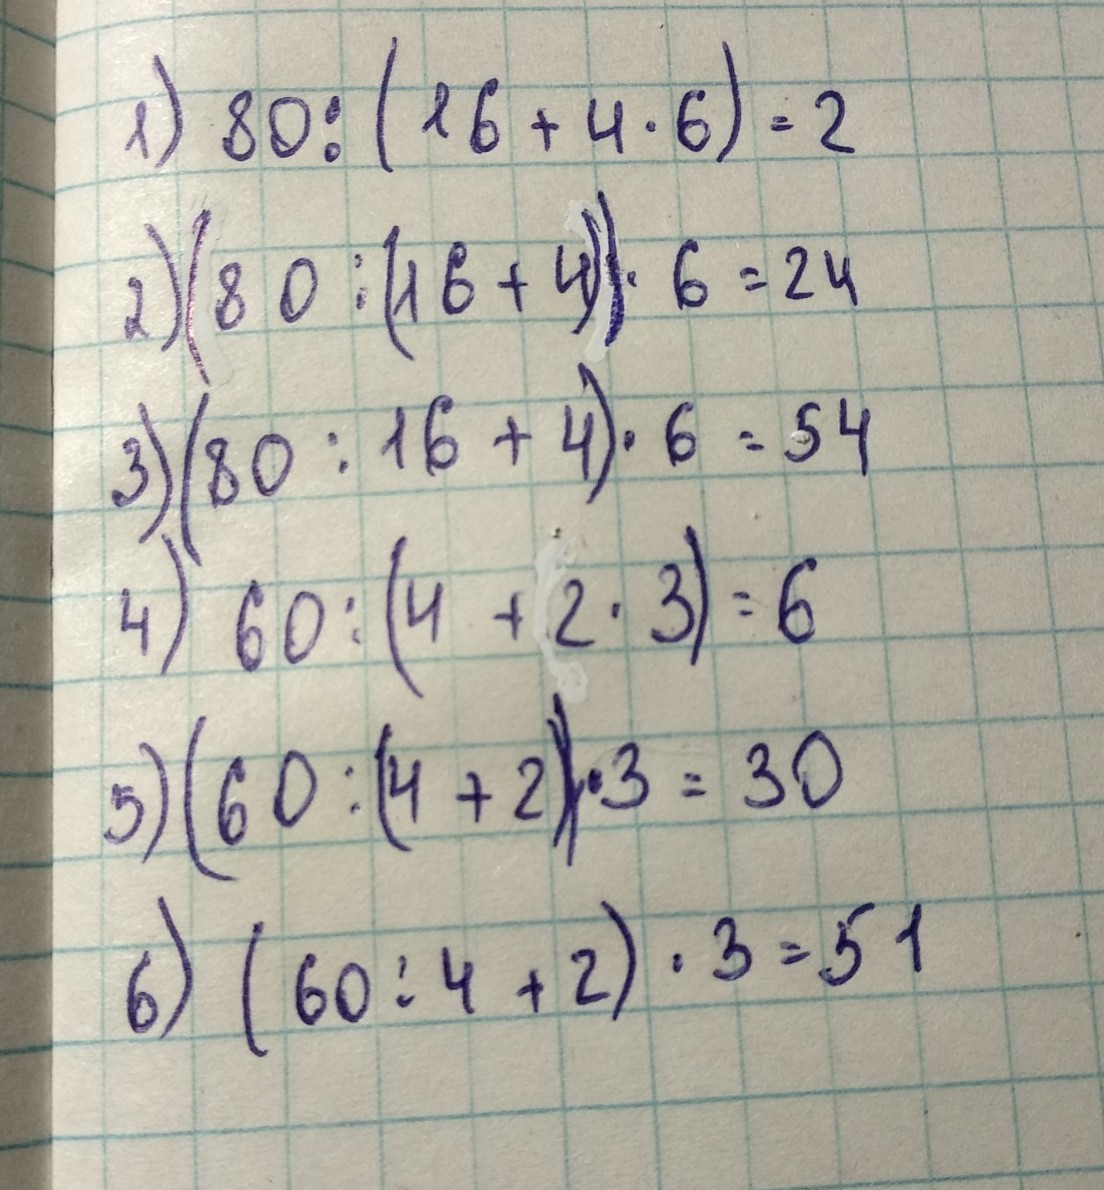 1) 80 : (16 + 4 · 6) = 2
2) (80 : (16 + 4)) · 6 = 24
3) (80 : 16 + 4) · 6 = 54
4) 60 : (4 + 2 · 3) = 6
5) (60 : (4 + 2)) · 3 = 30
6) (60 : 4 + 2) · 3 = 51